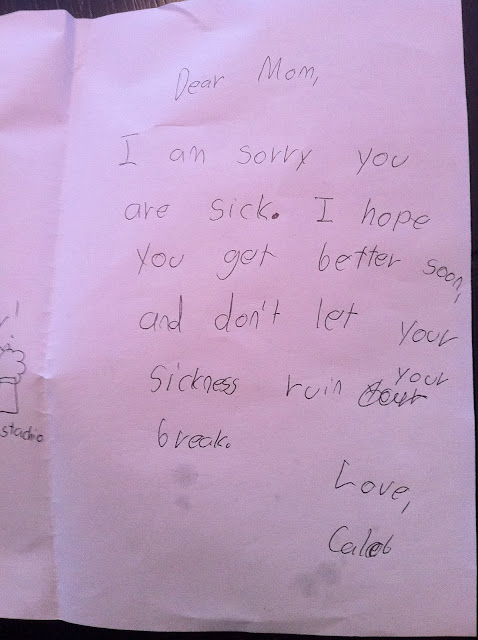 Dear Mom,
I am sorry you
are sick. I hope
you get better soon,
and don't let your
sickness ruin your
break.
Love,
Caleb
stachio